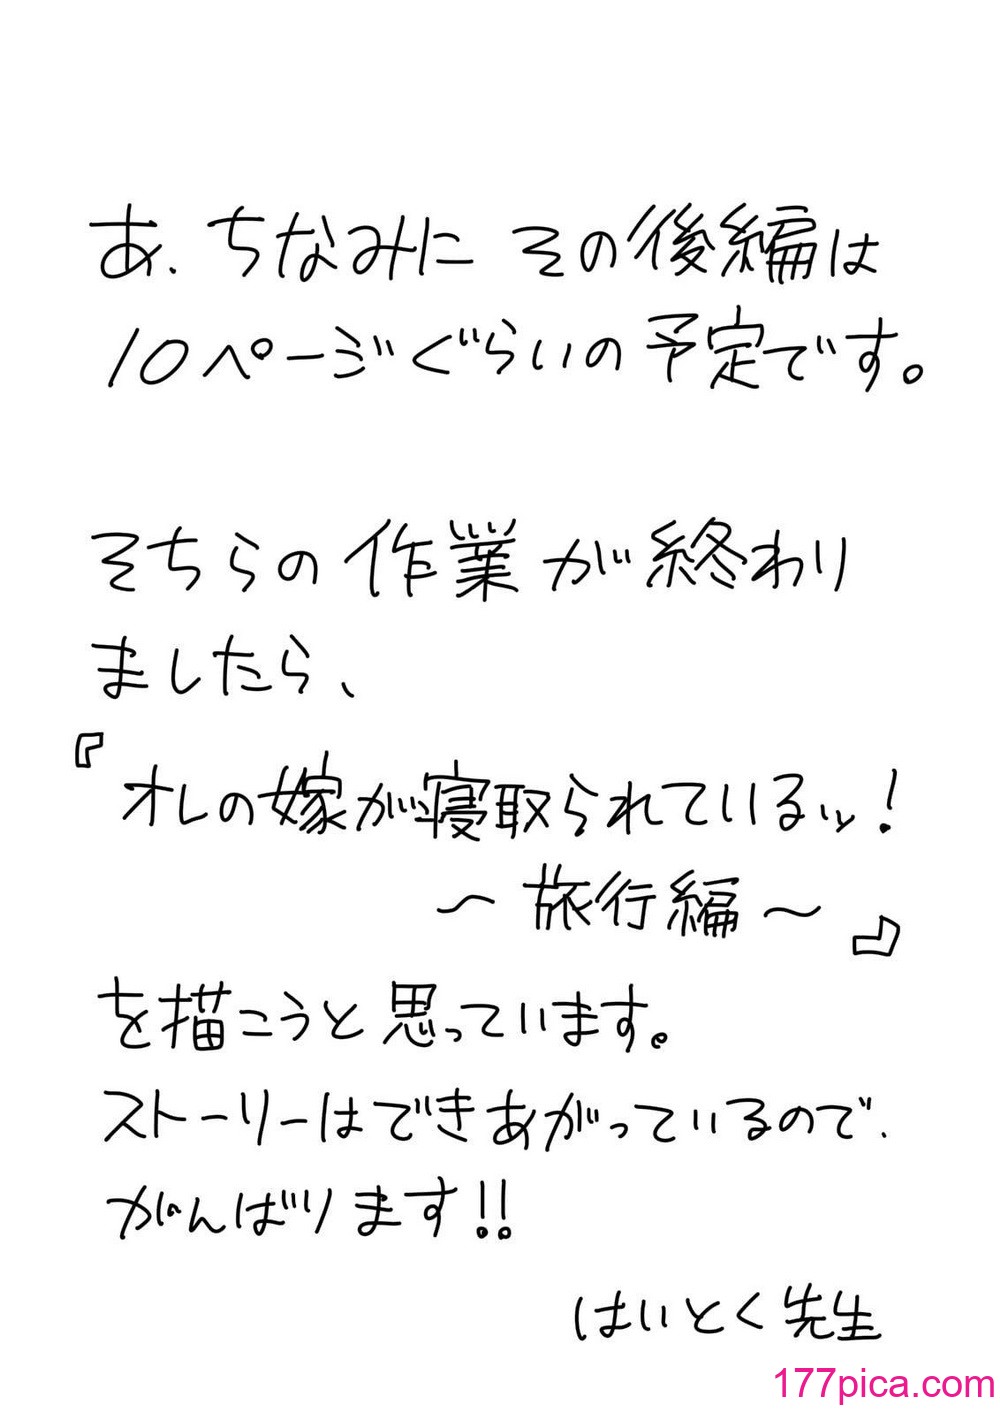 あ、ちなみに その後編は
10ページぐらいの予定です。
そちらの作業が終わり
ましたら、
『オレの嫁が寝取られているッ!
～旅行編～』
を描こうと思っています。
ストーリーはできあがっているので、
がんばります!!
はいとく先生
177pica.com